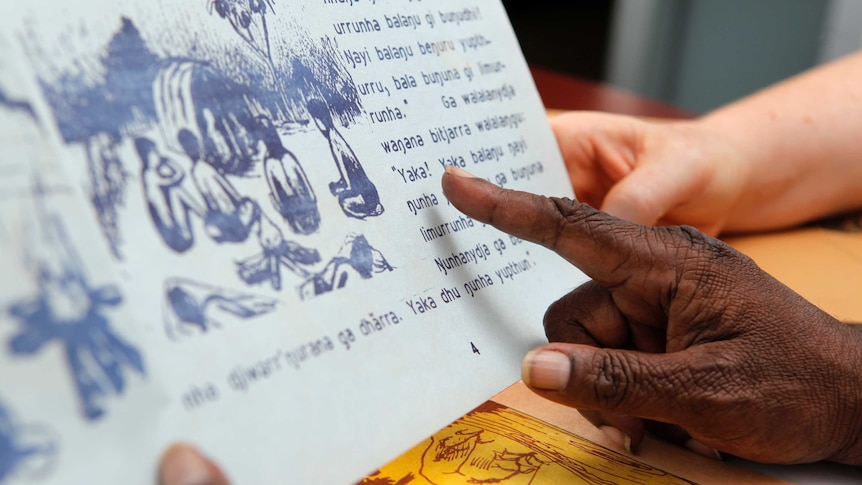 urrunha balaŋu gi buŋudhi!
Ŋayi balaŋu beŋuru yupth-
urru, bala buŋuna gi limun-
runha." Ga walalaŋydja
waŋana bitjarra walalaŋgu:
"Yaka! Yaka balaŋu ŋayi
ŋunha ga buŋuna
limurrunha
Ŋunhaŋydja ga
nha djwurr'ŋurana ga dhärra. Yaka dhu ŋunha yupthun".
4